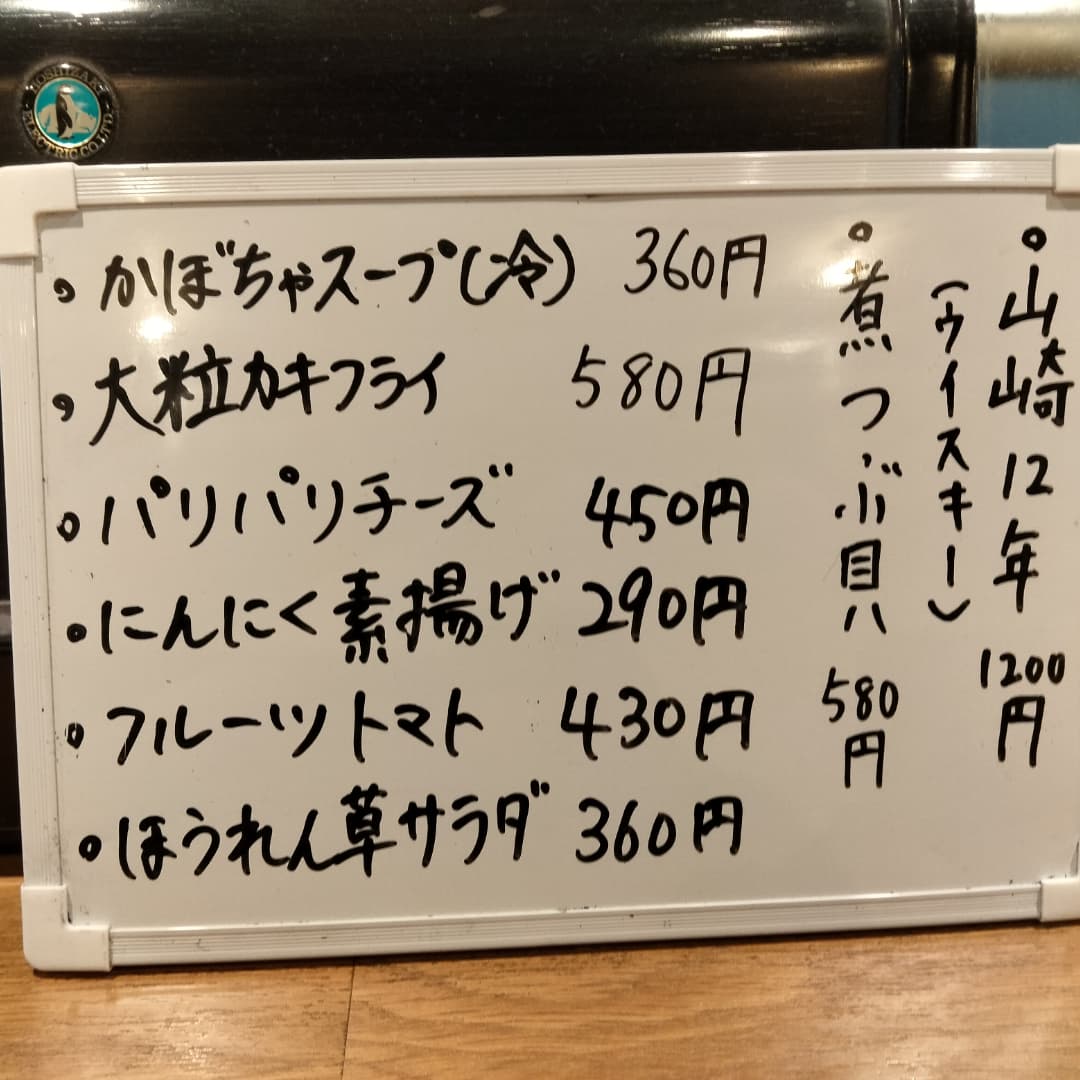 HOSHIZAKI ELECTRIC CO.,LTD.
・かぼちゃスープ(冷) 360円
・大粒カキフライ 580円
・パリパリチーズ 450円
・にんにく素揚げ 290円
・フルーツトマト 430円
・ほうれん草サラダ 360円
・山崎12年 1200円
(ウイスキー)
・煮つぶ貝 580円